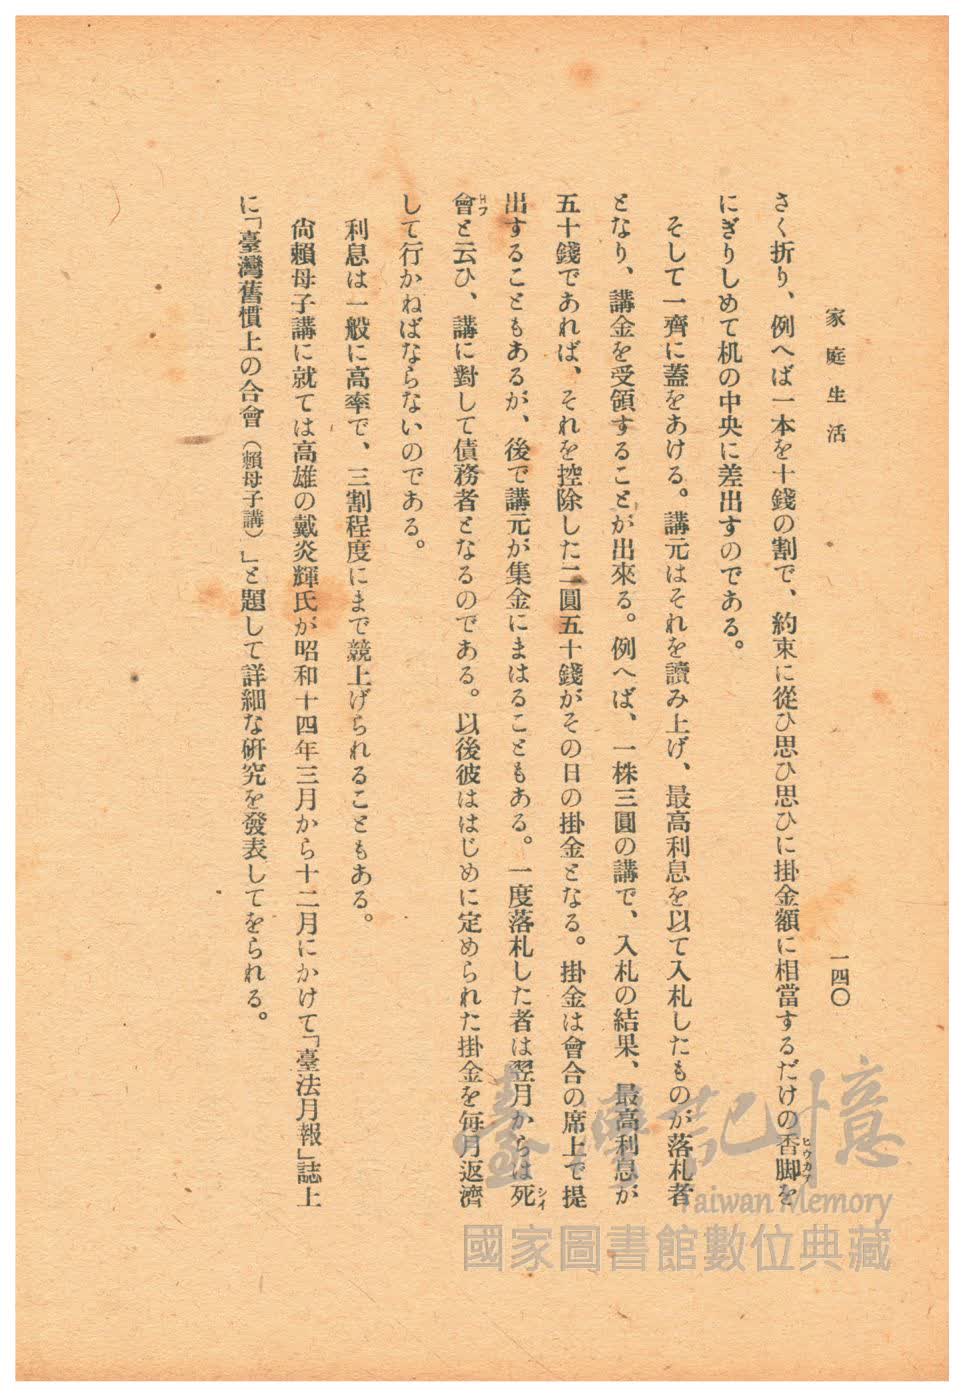 家庭生活
一四〇
さく折り、例へば一本を十錢の割で、約束に從ひ思ひ思ひに掛金額に相當するだけの香脚を
ヒウカア
にぎりしめて机の中央に差出すのである。
そして一齊に蓋をあける。講元はそれを讀み上げ、最高利息を以て入札したものが落札者
となり、講金を受領することが出來る。例へば、一株三圓の講で、入札の結果、最高利息が
五十錢であれば、それを控除した二圓五十錢がその日の掛金となる。掛金は會合の席上で提
出することもあるが、後で講元が集金にまはることもある。一度落札した者は翌月からは死
シイ
會と云ひ、講に對して債務者となるのである。以後彼ははじめに定められた掛金を毎月返濟
して行かねばならないのである。
利息は一般に高率で、三割程度にまで競上げられることもある。
尙賴母子講に就ては高雄の戴炎輝氏が昭和十四年三月から十二月にかけて「臺法月報」誌上
に「臺灣舊慣上の合會（賴母子講）」と題して詳細な硏究を發表してをられる。
臺灣記憶
Taiwan Memory
國家圖書館數位典藏